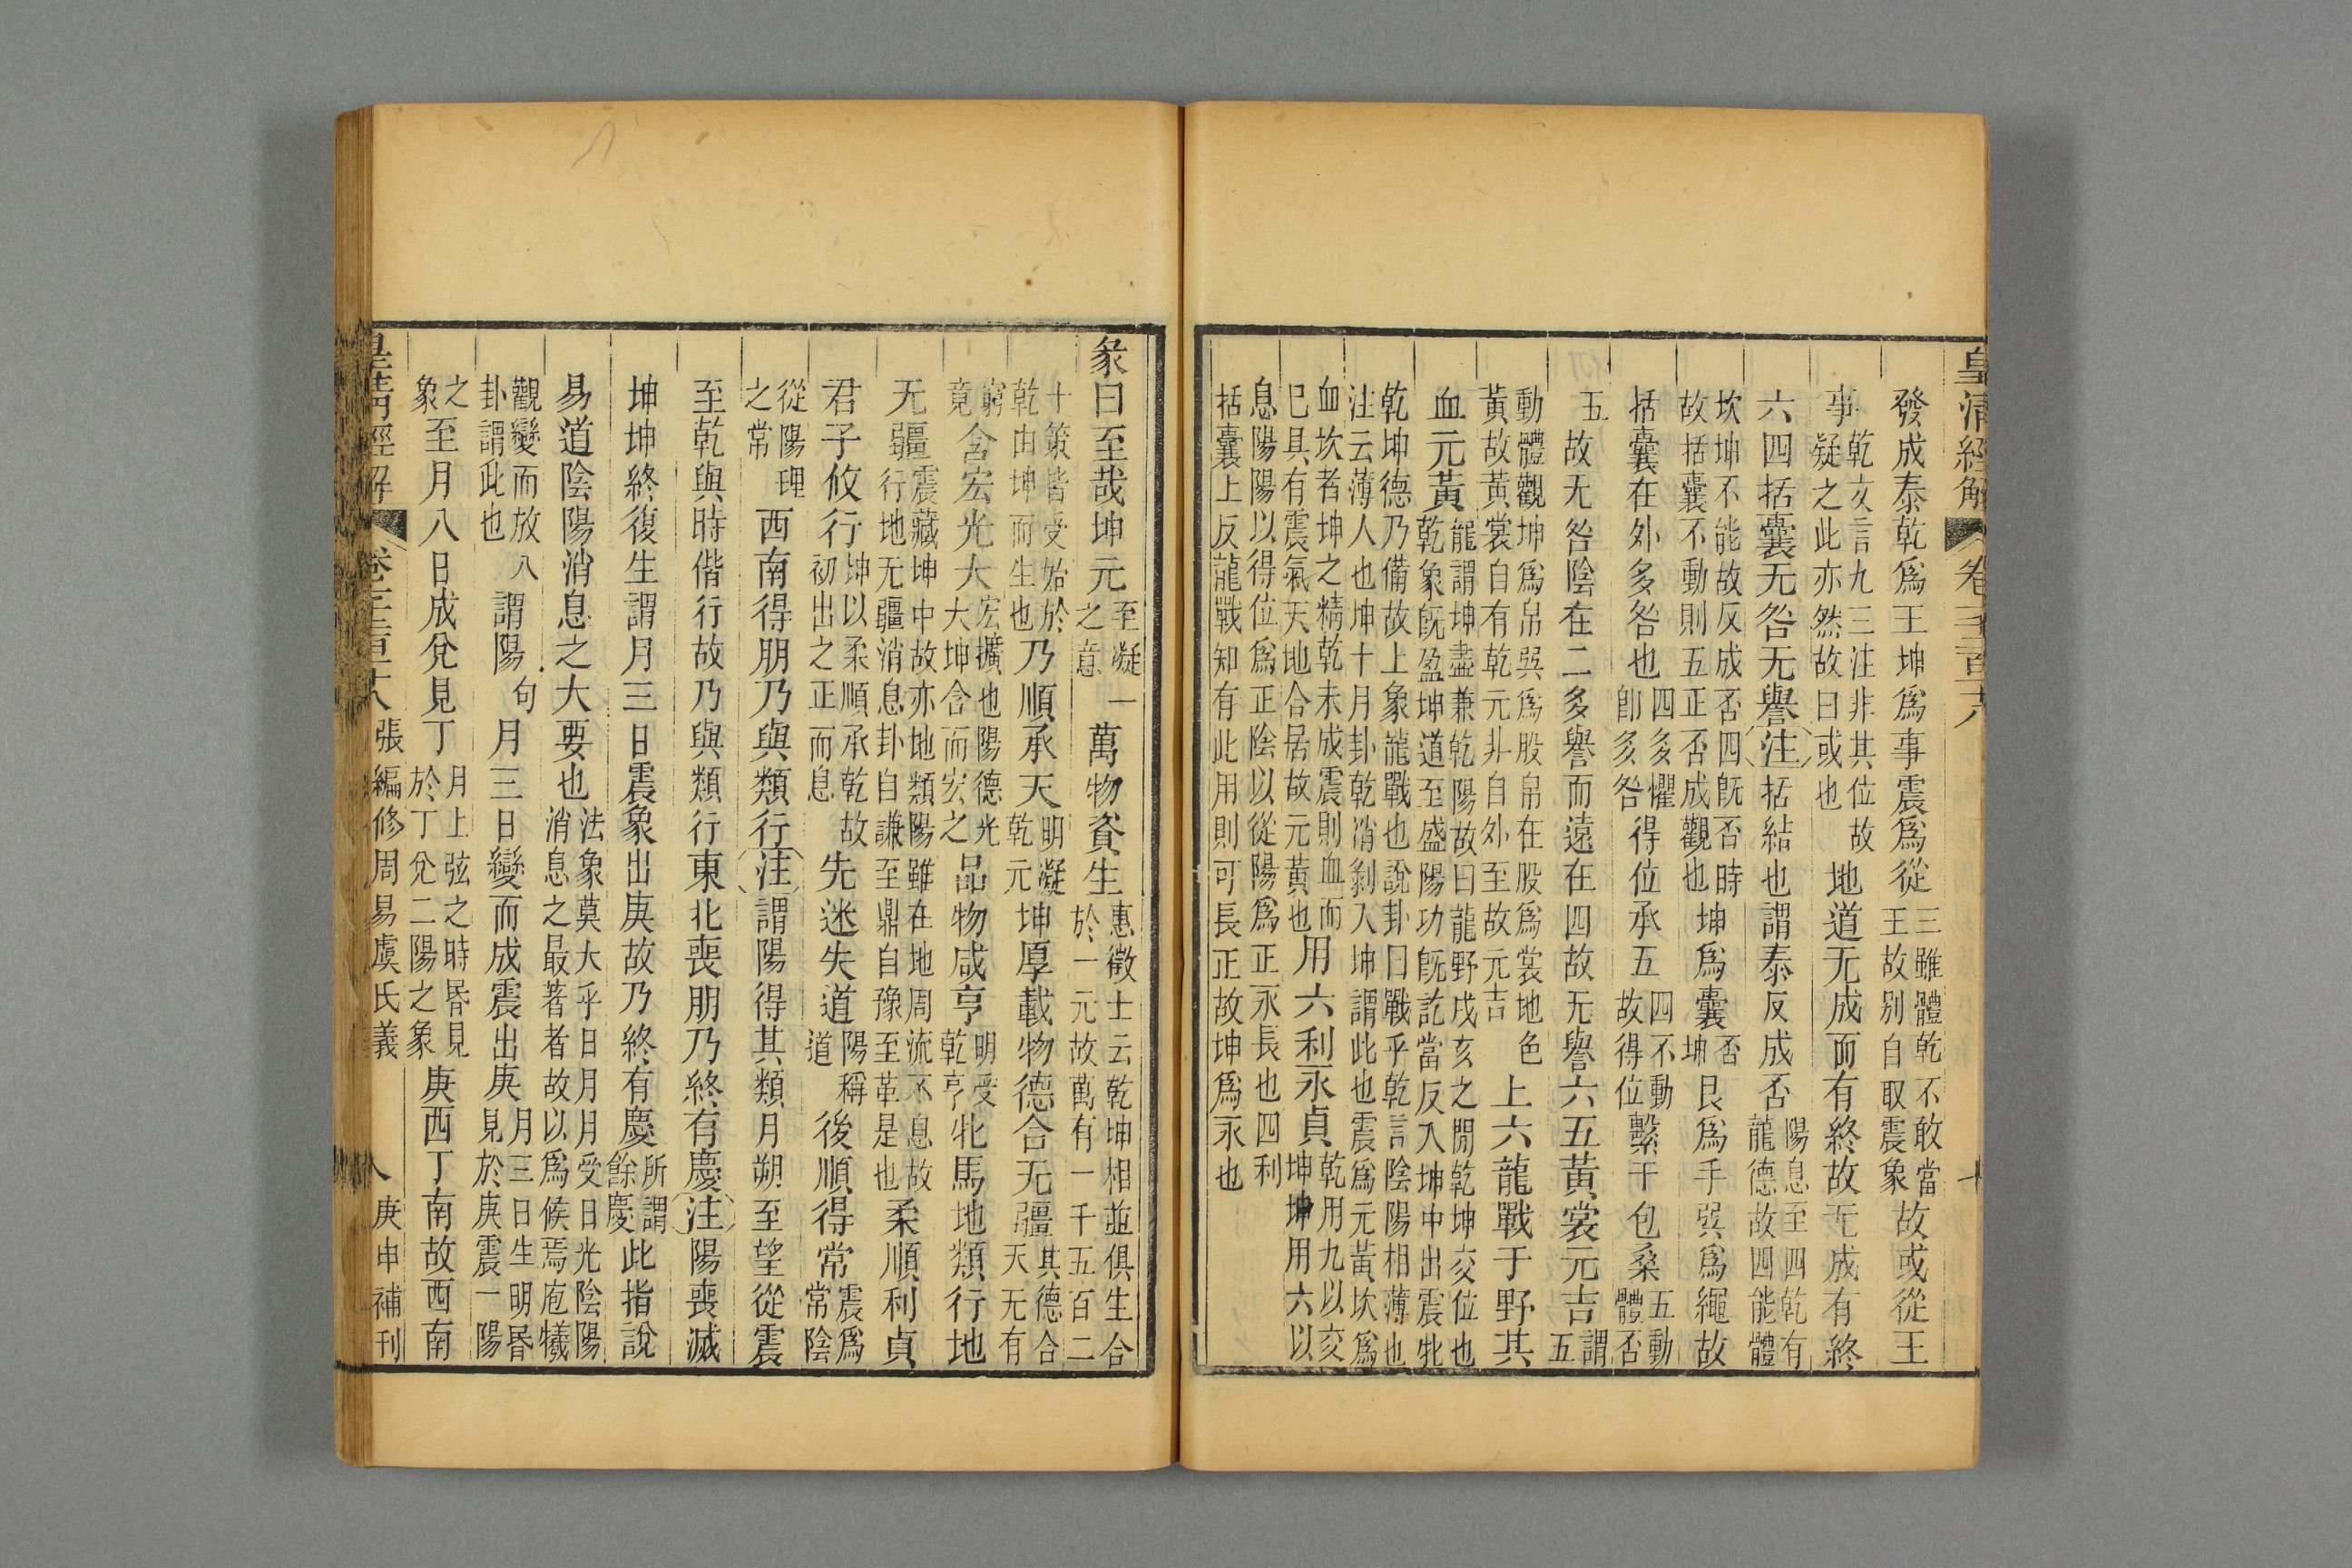 皇清經解 卷千二百十八 十
發成泰乾爲王坤爲事震爲從三雖體乾不敢當王故别自取震象故或從王
事乾文言九三注非其位故疑之此亦然故曰或也地道无成而有終故无成有終
六四括囊无咎无譽注括結也謂泰反成否陽息至四乾有龍德故四能體
坎坤不能故反成否四旣否時故括囊不動則五正否成觀也坤爲囊否坤艮爲手巽爲繩故
括囊在外多咎也四多懼卽多咎得位承五四不動故得位繫于包桑五動體否
五故无咎陰在二多譽而遠在四故无譽六五黃裳元吉謂五
動體觀坤爲帛巽爲股帛在股爲裳地色黃故黃裳自有乾元非自外至故元吉上六龍戰于野其
血元黃龍謂坤盡兼乾陽故曰龍野戌亥之閒乾坤交位也乾象旣盈坤道至盛陽功旣訖當反入坤中出震牝
乾坤德乃備故上象龍戰也說卦曰戰乎乾言陰陽相薄也注云薄人也坤十月卦乾消剝入坤謂此也震爲元黃坎爲
血坎者坤之精乾未成震則血而巳具有震氣天地合居故元黃也用六利永貞乾用九以交坤坤用六以
息陽陽以得位爲正陰以從陽爲正永長也四利括囊上反龍戰知有此用則可長正故坤爲永也
彖曰至哉坤元至凝一之意萬物資生惠徵士云乾坤相並俱生合於一元故萬有一千五百二
十策皆受始於乾由坤而生也乃順承天明凝乾元坤厚載物德合无疆其德合天无有
窮竟含宏光大宏擴也陽德光大坤含而宏之品物咸亨明受乾亨牝馬地類行地
无疆震藏坤中故亦地類陽雖在地周流不息故行地无疆消息卦自謙至鼎自豫至革是也柔順利貞
君子攸行坤以柔順承乾故初出之正而息先迷失道陽稱道後順得常震爲常陰
從陽理之常西南得朋乃與類行注謂陽得其類月朔至望從震
至乾與時偕行故乃與類行東北喪朋乃終有慶注陽喪滅
坤坤終復生謂月三日震象出庚故乃終有慶所謂餘慶此指說
易道陰陽消息之大要也法象莫大乎日月月受日光陰陽消息之最著者故以爲候焉庖犧
觀變而放八卦謂此也謂陽句月三日變而成震出庚月三日生明昏見於庚震一陽
之象至月八日成兌見丁月上弦之時昏見於丁兌二陽之象庚西丁南故西南
皇清經解 卷千二百十八 張編修周易虞氏義 八 庚申補刊